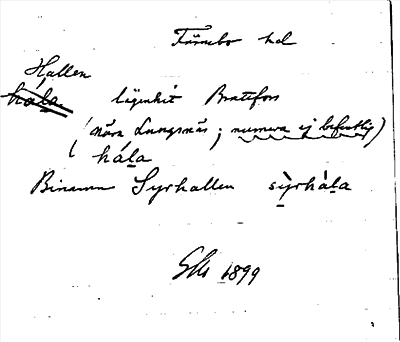 Färnebo hd
Hallen
hala lägenhet Brattfors
(nära Lungsnäs; numera ej befintlig)
hála
Binamn Syrhallen sỳrhàla
1899